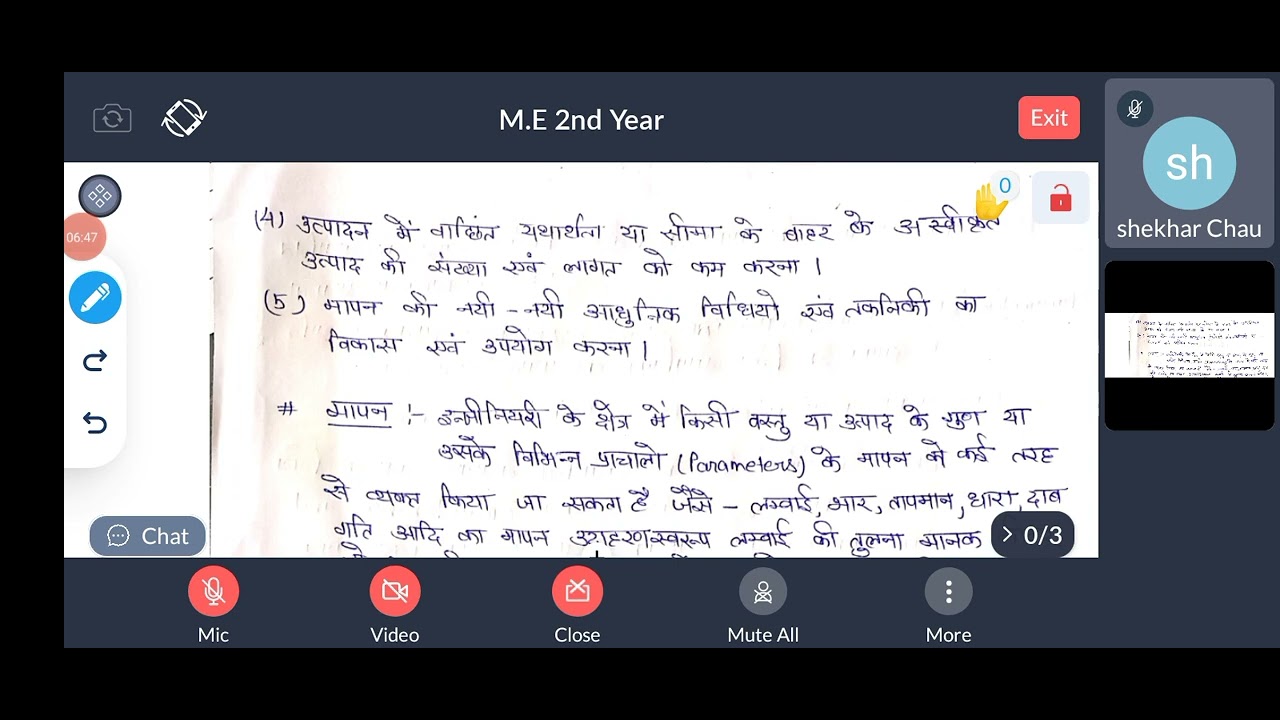 M.E 2nd Year
Exit
sh
shekhar Chau
0
06:47
(4) उत्पादन में वांछित यथार्थता या सीमा के बाहर के अस्वीकृत
उत्पाद की संख्या एवं लागत को कम करना ।
(5) मापन की नयी - नयी आधुनिक विधियो एवं तकनिकी का
विकास एवं उपयोग करना ।
# मापन :- इन्जीनियरी के क्षेत्र में किसी वस्तु या उत्पाद के गुण या
उसके विभिन्न प्राचालो (Parameters) के मापन को कई तरह
से व्यक्त किया जा सकता है जैसे - लम्बाई, भार, तापमान, धारा, दाब
गति आदि का मापन उदाहरणस्वरूप लम्बाई की तुलना मानक
Chat
0/3
Mic
Video
Close
Mute All
More